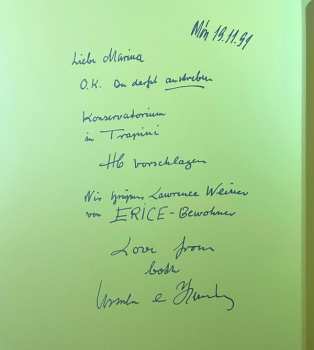 Mön 19.11.91
Liebe Marina
O.K. Du darfst ausstreben
Konservatorium
in Trapini
HC vorschlagen
Wir grüssen Lawrence Weiner
von ERICE-Bewohner
Love from
both
Ursula e